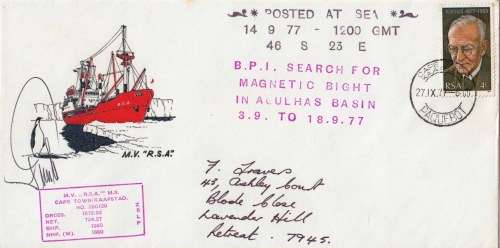 POSTED AT SEA
14 9 77 - 1200 GMT
46 S 23 E
B.P.I. SEARCH FOR
MAGNETIC BIGHT
IN ALULHAS BASIN
3.9. TO 18.9.77
RSA 4c
27.IX.77
PAQUEBOT
M.V. "R.S.A."
M.V. „R.S.A.” M.S.
CAPE TOWN/KAAPSTAD.
GROSS.
NET.
BHP.
NHP. (M).
ZSLP
T. Travers
45, Ashley Court
Blode Close
Lavender Hill
Retreat. 7945.